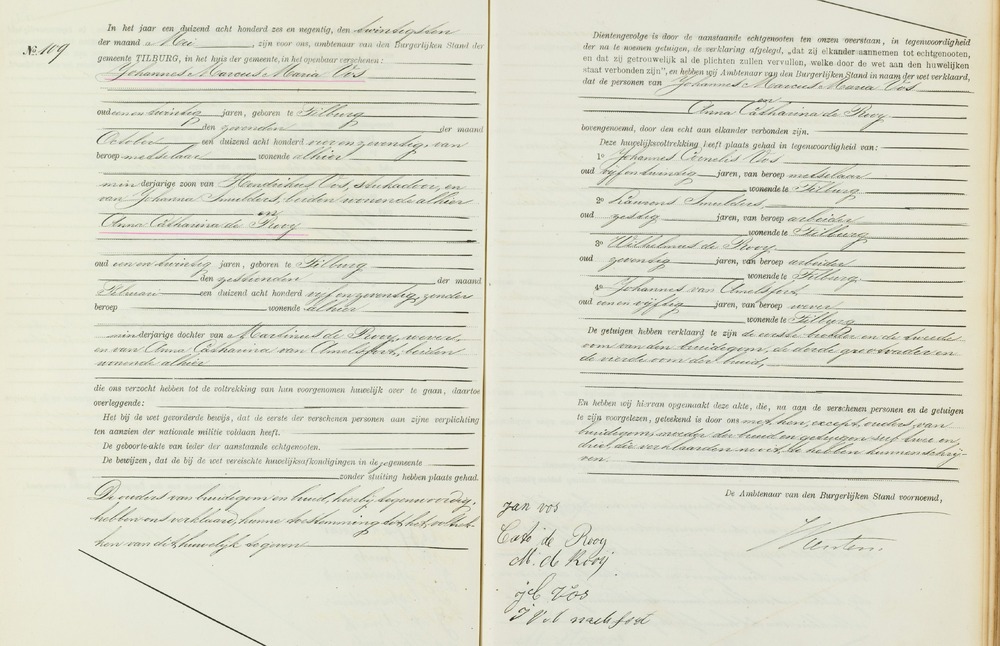 No. 109
In het jaar een duizend acht honderd zes en negentig, den twintigsten
der maand Mei, zijn voor ons, ambtenaar van den Burgerlijken Stand der
gemeente TILBURG, in het huis der gemeente, in het openbaar verschenen:
Johannes Marcus Maria Vos
oud een en twintig jaren, geboren te Tilburg
den zevenden der maand
October een duizend acht honderd vier en zeventig, van
beroep metselaar wonende alhier
minderjarige zoon van Hendrikus Vos, stukadoor, en
van Johanna Smulders, beiden wonende alhier
en
Anna Catharina de Rooy
oud een en twintig jaren, geboren te Tilburg
den zestienden der maand
Februari een duizend acht honderd vijf en zeventig, zonder
beroep wonende alhier
minderjarige dochter van Martinus de Rooy, wever,
en van Anna Catharina van Amelsfort, beiden
wonende alhier
die ons verzocht hebben tot de voltrekking van hun voorgenomen huwelijk over te gaan, daartoe
overleggende:
Het bij de wet gevorderde bewijs, dat de eerste der verschenen personen aan zijne verplichting
ten aanzien der nationale militie voldaan heeft.
De geboorte-akte van ieder der aanstaande echtgenooten.
De bewijzen, dat de bij de wet vereischte huwelijksafkondigingen in deze gemeente
zonder stuiting hebben plaats gehad.
De ouders van bruidegom en bruid, hierbij tegenwoordig,
hebben ons verklaard, hunne toestemming tot het voltrek-
ken van dit huwelijk te geven
Dientengevolge is door de aanstaande echtgenooten ten onzen overstaan, in tegenwoordigheid
der na te noemen getuigen, de verklaring afgelegd, „dat zij elkander aannemen tot echtgenooten,
en dat zij getrouwelijk al de plichten zullen vervullen, welke door de wet aan den huwelijken
staat verbonden zijn”, en hebben wij Ambtenaar van den Burgerlijken Stand in naam der wet verklaard,
dat de personen van Johannes Marcus Maria Vos
en
Anna Catharina de Rooy
bovengenoemd, door den echt aan elkander verbonden zijn.
Deze huwelijksvoltrekking heeft plaats gehad in tegenwoordigheid van:
1o Johannes Cornelis Vos
oud vijf en twintig jaren, van beroep metselaar
wonende te Tilburg
2o Laurens Smulders,
oud zestig jaren, van beroep arbeider
wonende te Tilburg
3o Wilhelmus de Rooy
oud zeventig jaren, van beroep arbeider
wonende te Tilburg
4o Johannes van Amelsfort
oud een en vijftig jaren, van beroep wever
wonende te Tilburg
De getuigen hebben verklaard te zijn de eerste broeder en de tweede
oom van den bruidegom, de derde grootvader en
de vierde oom der bruid,
En hebben wij hiervan opgemaakt deze akte, die, na aan de verschenen personen en de getuigen
te zijn voorgelezen, geteekend is door ons met hen, except, ouders van
bruidegom, moeder der bruid en getuigen sub twee en
drie die verklaarden nooit te hebben kunnen schrij-
ven.
De Ambtenaar van den Burgerlijken Stand voornoemd,
Jan Vos
Cato de Rooy
M. de Rooij
JC Vos